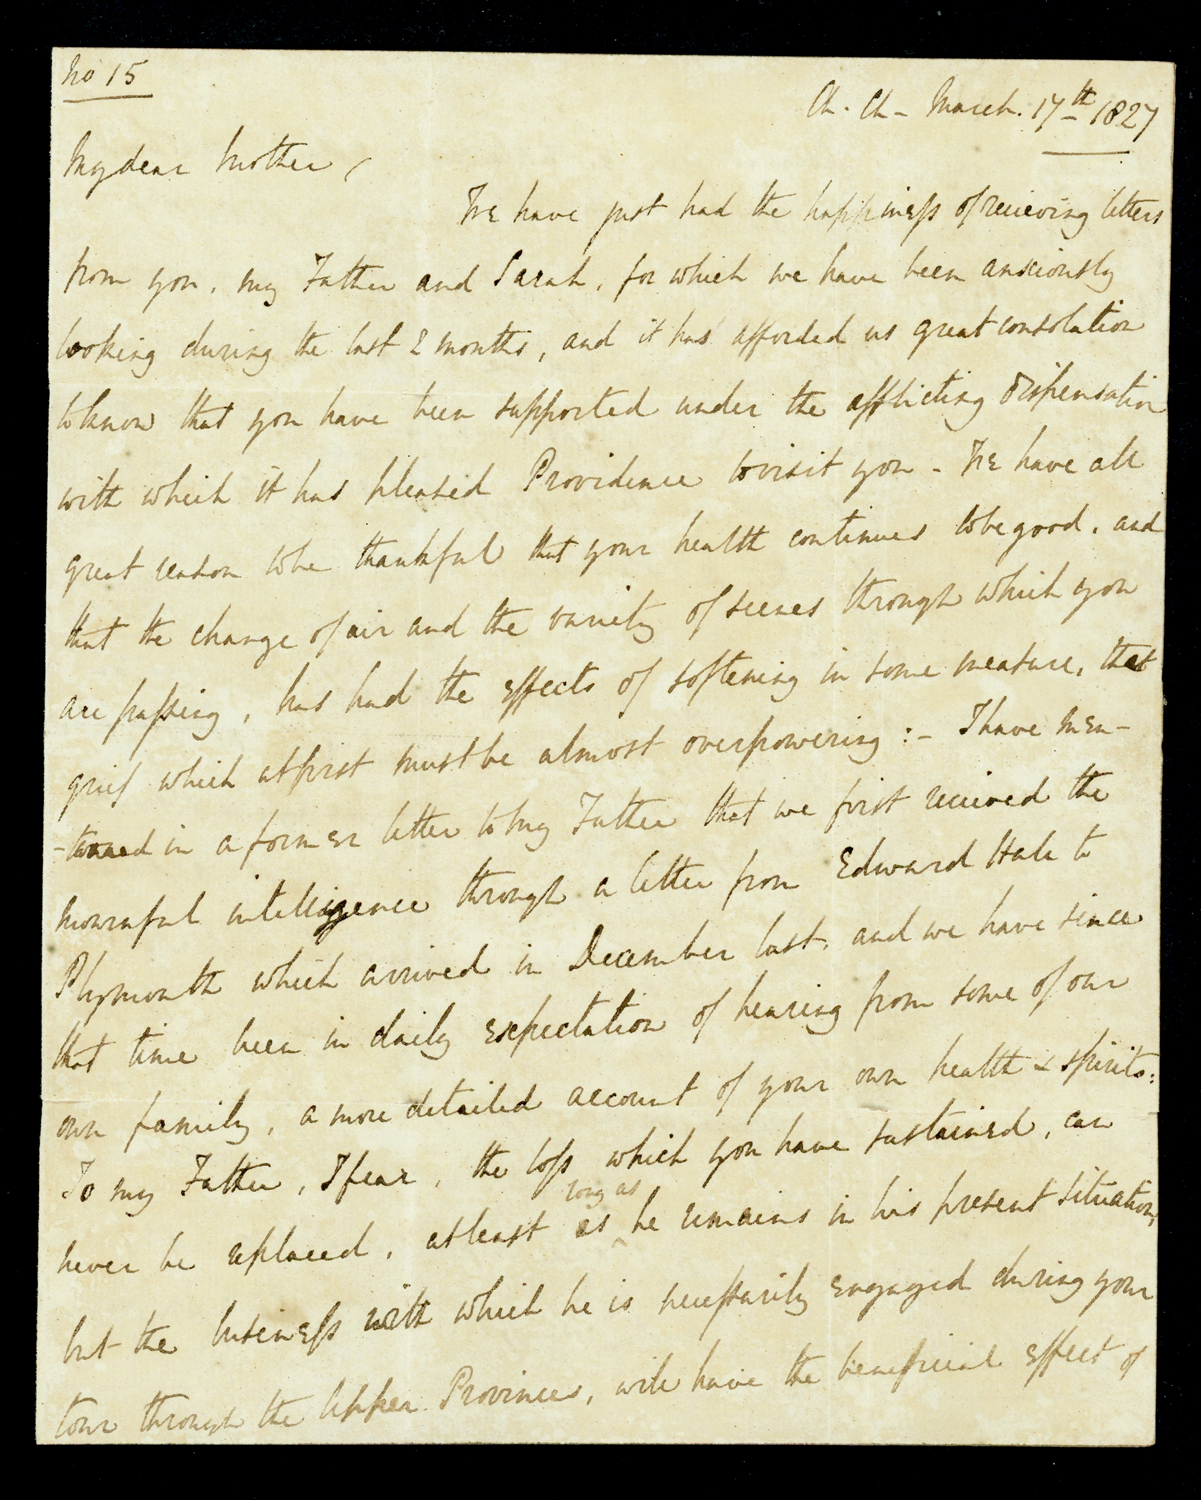 No 15
Ch. Ch - March. 17th 1827
My dear Mother,
We have just had the happiness of recieving letters
from you, my Father and Sarah, for which we have been anxiously
looking during the last 2 months, and it has afforded us great consolation
to know that you have been supported under the afflicting dispensation
with which it has pleased Providence to visit you - We have all
great reason to be thankful that your health continues to be good, and
that the change of air and the variety of scenes through which you
are passing, has had the effects of softening in some measure, that
grief which at first must be almost overpowering :- I have men-
-tioned in a former letter to my Father that we first recieved the
mournful intelligence through a letter from Edward Hale to
Plymouth which arrived in December last, and we have since
that time been in daily expectation of hearing from some of our
own family, a more detailed account of your own health & spirits:
To my Father, I fear, the loss which you have sustained, can
never be replaced, at least as long as he remains in his present situation,
but the business with which he is necessarily engaged during your
tour through the Upper Provinces, will have the beneficial effect of